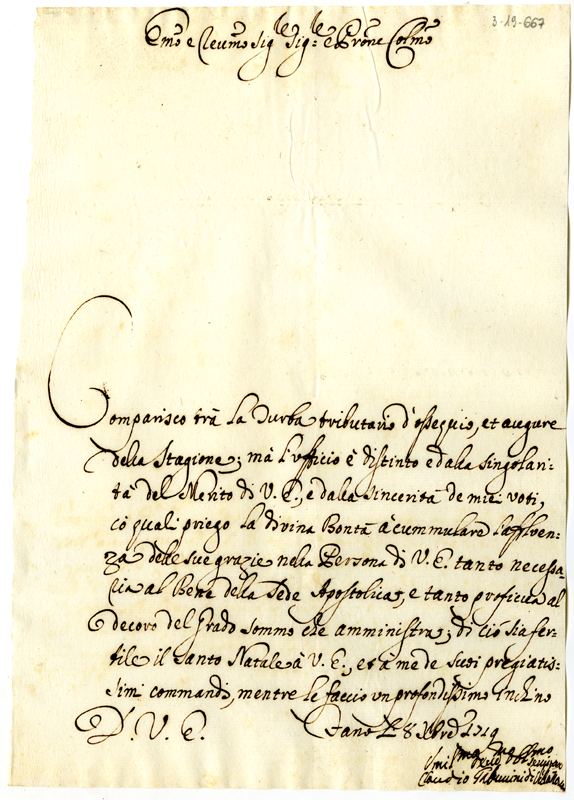 3-19-667
Emo e Reumo Sig.le Sig.le e Prone Colmo
Comparisco trà la Turba tributario d'ossequio, et augure
della Stagione; mà l'ufficio è distinto e dalla singolari-
tà del Merito di V. E., e dalla sincerità de miei voti,
cò quali priego la divina Bontà à cummulare l'affluen-
za delle sue grazie nella Persona di V. E. tanto necessa-
ria al Bene della Sede Apostolica, e tanto proficua al
decoro del Grado sommo che amministra; di ciò sia fer-
tile il santo Natale à V. E., et à me de suoi pregiatis-
simi commandi, mentre le faccio un profondissimo inchino
D. V. E. Fano Li 8 Xbre 1719
Umilmo
Claudio